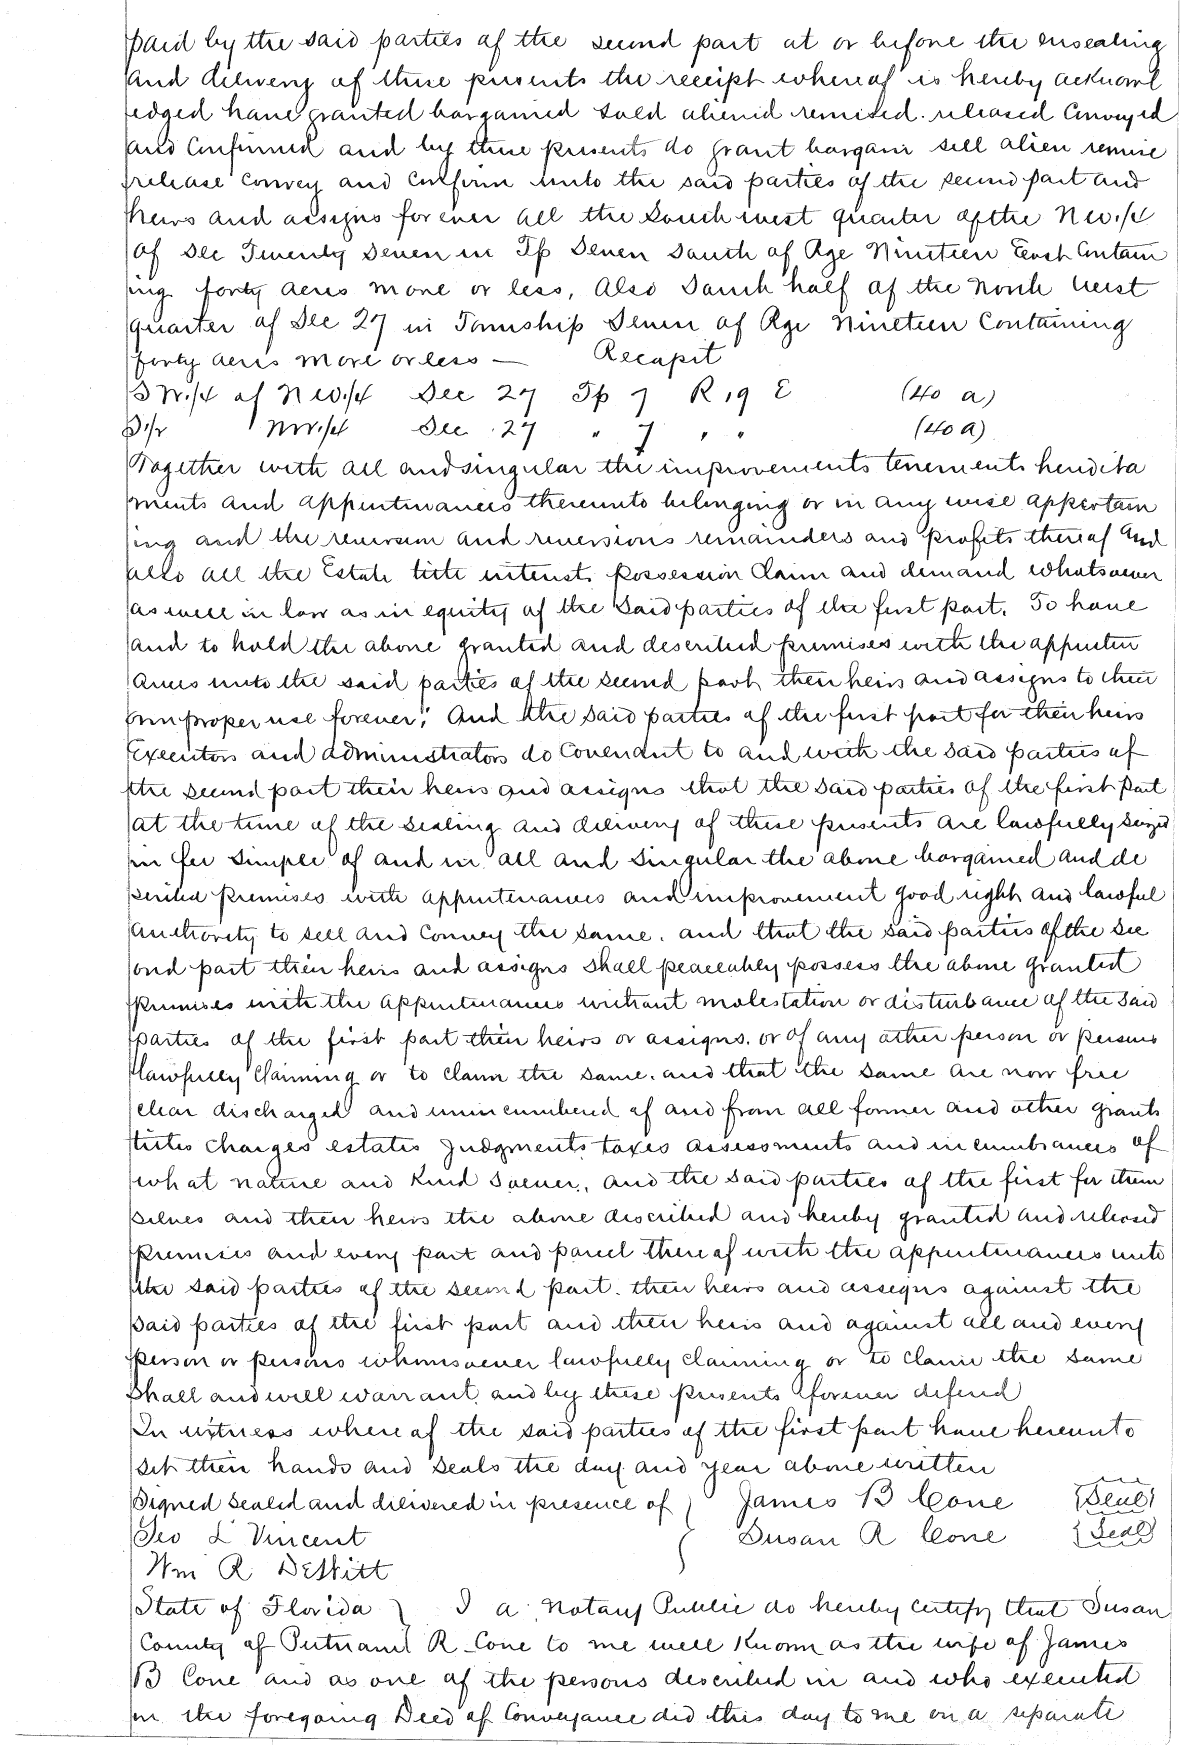 paid by the said parties of the second part at or before the ensealing
and delivery of these presents the receipt whereof is hereby acknowl
edged have granted bargained sold aliened remised. released Conveyed
and Confirmed and by these presents do grant bargain sell alien remise
release convey and confirm unto the said parties of the second part and
heirs and assigns forever all the South west quarter of the N W.1/4
of Sec Twenty Seven in Tp Seven South of Rge Nineteen East Contain
ing forty acres more or less, Also South half of the North West
quarter of Sec 27 in Township Seven of Rge Nineteen Containing
forty acres more or less — Recapit
S W.1/4 of N W.1/4 Sec 27 Tp 7 R 19 E (40 a)
S 1/2 NW.1/4 Sec. 27 " 7 " " (40 a)
Together with all and singular the improvements tenements heredita
ments and appurtinances thereunto belonging or in any wise appertain
ing and the reversion and reversions remainders and profits thereof and
also all the Estate title interest, possession Claim and demand whatsoever
as well in law as in equity of the said parties of the first part. To have
and to hold the above granted and described premises with the appurten
ances unto the said parties of the second part their heirs and assigns to their
own proper use forever. And the said parties of the first part for their heirs
Executors and administrators do Covenant to and with the said parties of
the second part their heirs and assigns that the said parties of the first part
at the time of the sealing and delivery of these presents are lawfully seized
in fee simple of and in all and singular the above bargained and de
scribed premises with appurtenances and improvement good right and lawful
authority to sell and convey the same. and that the said parties of the sec
ond part their heirs and assigns shall peaceably possess the above granted
premises with the appurtenances without molestation or disturbance of the said
parties of the first part their heirs or assigns. or of any other person or persons
lawfully claiming or to claim the same. and that the same are now free
clear discharged and unincumbered of and from all former and other grants
titles charges estates judgments taxes assessments and incumbrances of
what nature and kind soever, and the said parties of the first for them
selves and their heirs the above described and hereby granted and released
premises and every part and parcel thereof with the appurtenances unto
the said parties of the second part. their heirs and assigns against the
said parties of the first part and their heirs and against all and every
person or persons whomsoever lawfully claiming or to claim the same
shall and will warrant and by these presents forever defend
In witness whereof the said parties of the first part have hereunto
set their hands and seals the day and year above written
Signed Sealed and delivered in presence of } James B Cone {Seal}
Geo L Vincent { Susan R Cone {Seal}
Wm R DeWitt
State of Florida } I a Notary Public do hereby certify that Susan
County of Putnam } R Cone to me well known as the wife of James
B Cone and as one of the persons described in and who executed
in the foregoing Deed of Conveyance did this day to me on a separate